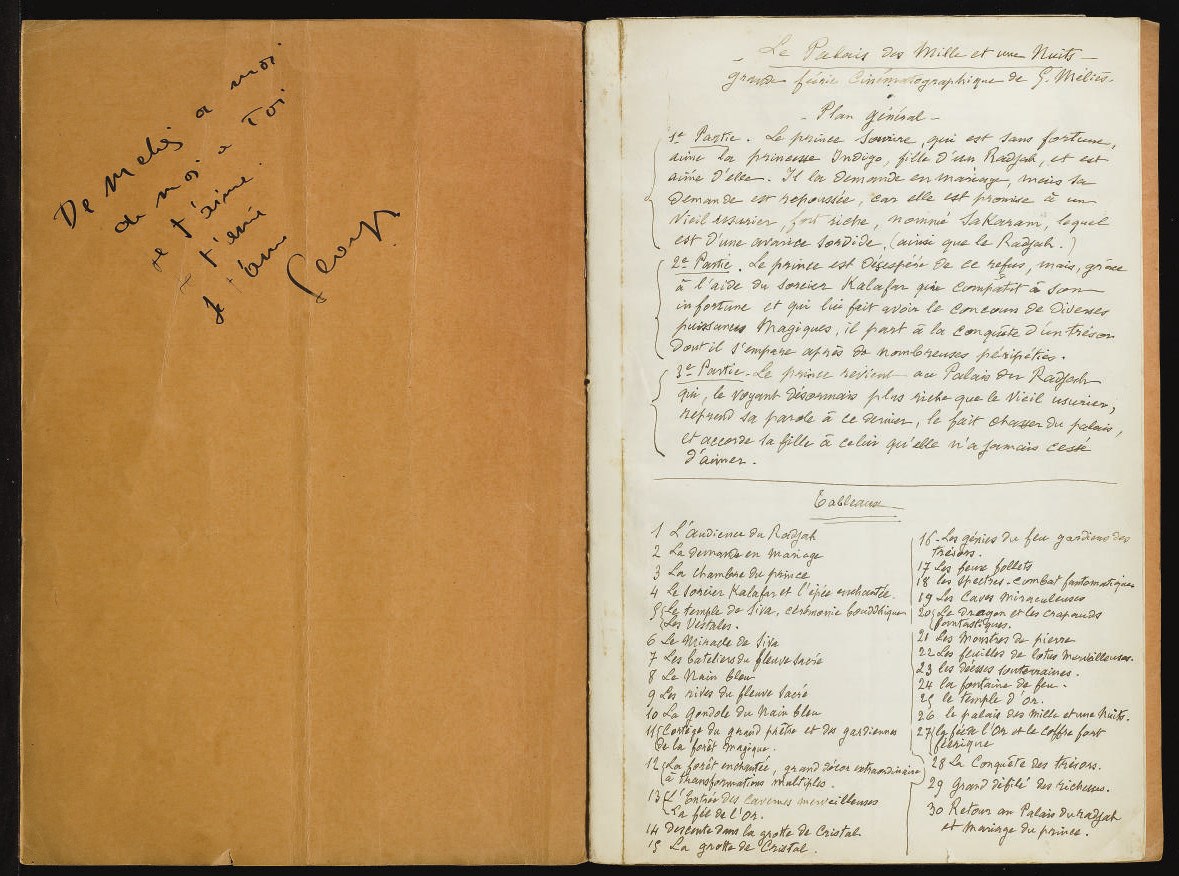 De melies a moi
de moi a Toi
je t'aime
t'aime
Je t'aime
Georges
Le Palais des Mille et une Nuits -
grande féerie Cinématographique de G. Méliès -
- Plan général -
1e Partie. Le prince Sourire, qui est sans fortune,
aime la princesse Indigo, fille d'un Radjah, et est
aimé d'elle. Il la demande en mariage, mais sa
demande est repoussée, car elle est promise à un
vieil usurier, fort riche, nommé Sakaram, lequel
est d'une avarice sordide, (ainsi que le Radjah.)
2e Partie. Le prince est désespéré de ce refus, mais, grâce
à l'aide du sorcier Kalafar qui compatit à son
infortune et qui lui fait avoir le concours de diverses
puissances magiques, il part à la conquête d'un trésor
dont il s'empare après de nombreuses péripéties.
3e Partie. Le prince revient au Palais du Radjah
qui, le voyant désormais plus riche que le vieil usurier,
reprend sa parole à ce dernier, le fait chasser du palais,
et accorde sa fille à celui qu'elle n'a jamais cessé
d'aimer.
Tableaux
1 L'audience du Radjah
2 La demande en mariage
3 La chambre du prince
4 Le Sorcier Kalafar et l'épée enchantée
5 Le temple de Siva, cérémonie bouddhique
Les Vestales.
6 Le Miracle de Siva
7 Les bateliers du fleuve sacré
8 Le Nain bleu
9 Les rives du fleuve sacré
10 La Gondole du Nain bleu
11 Cortège du grand prêtre et des gardiennes
de la forêt magique.
12 La forêt enchantée, grand décor extraordinaire
à transformations multiples.
13 L'Entrée des cavernes merveilleuses
La fée de l'Or.
14 Descente dans la grotte de Cristal
15 La grotte de Cristal.
16 - Les génies du feu gardiens des
trésors.
17 Les feux follets
18 les spectres - combat fantomatique
19 Les Caves miraculeuses
20 Le Dragon et les crapauds
fantastiques.
21 Les Monstres de pierre
22 Les feuilles de lotus merveilleuses.
23 les déesses souterraines.
24 la fontaine de feu.
25 le temple d'Or.
26 le palais des mille et une nuits.
27 la fée de l'Or et le coffre fort
féerique
28 La Conquête des trésors.
29 Grand défilé des richesses.
30 Retour au Palais du radjah
et mariage du prince.